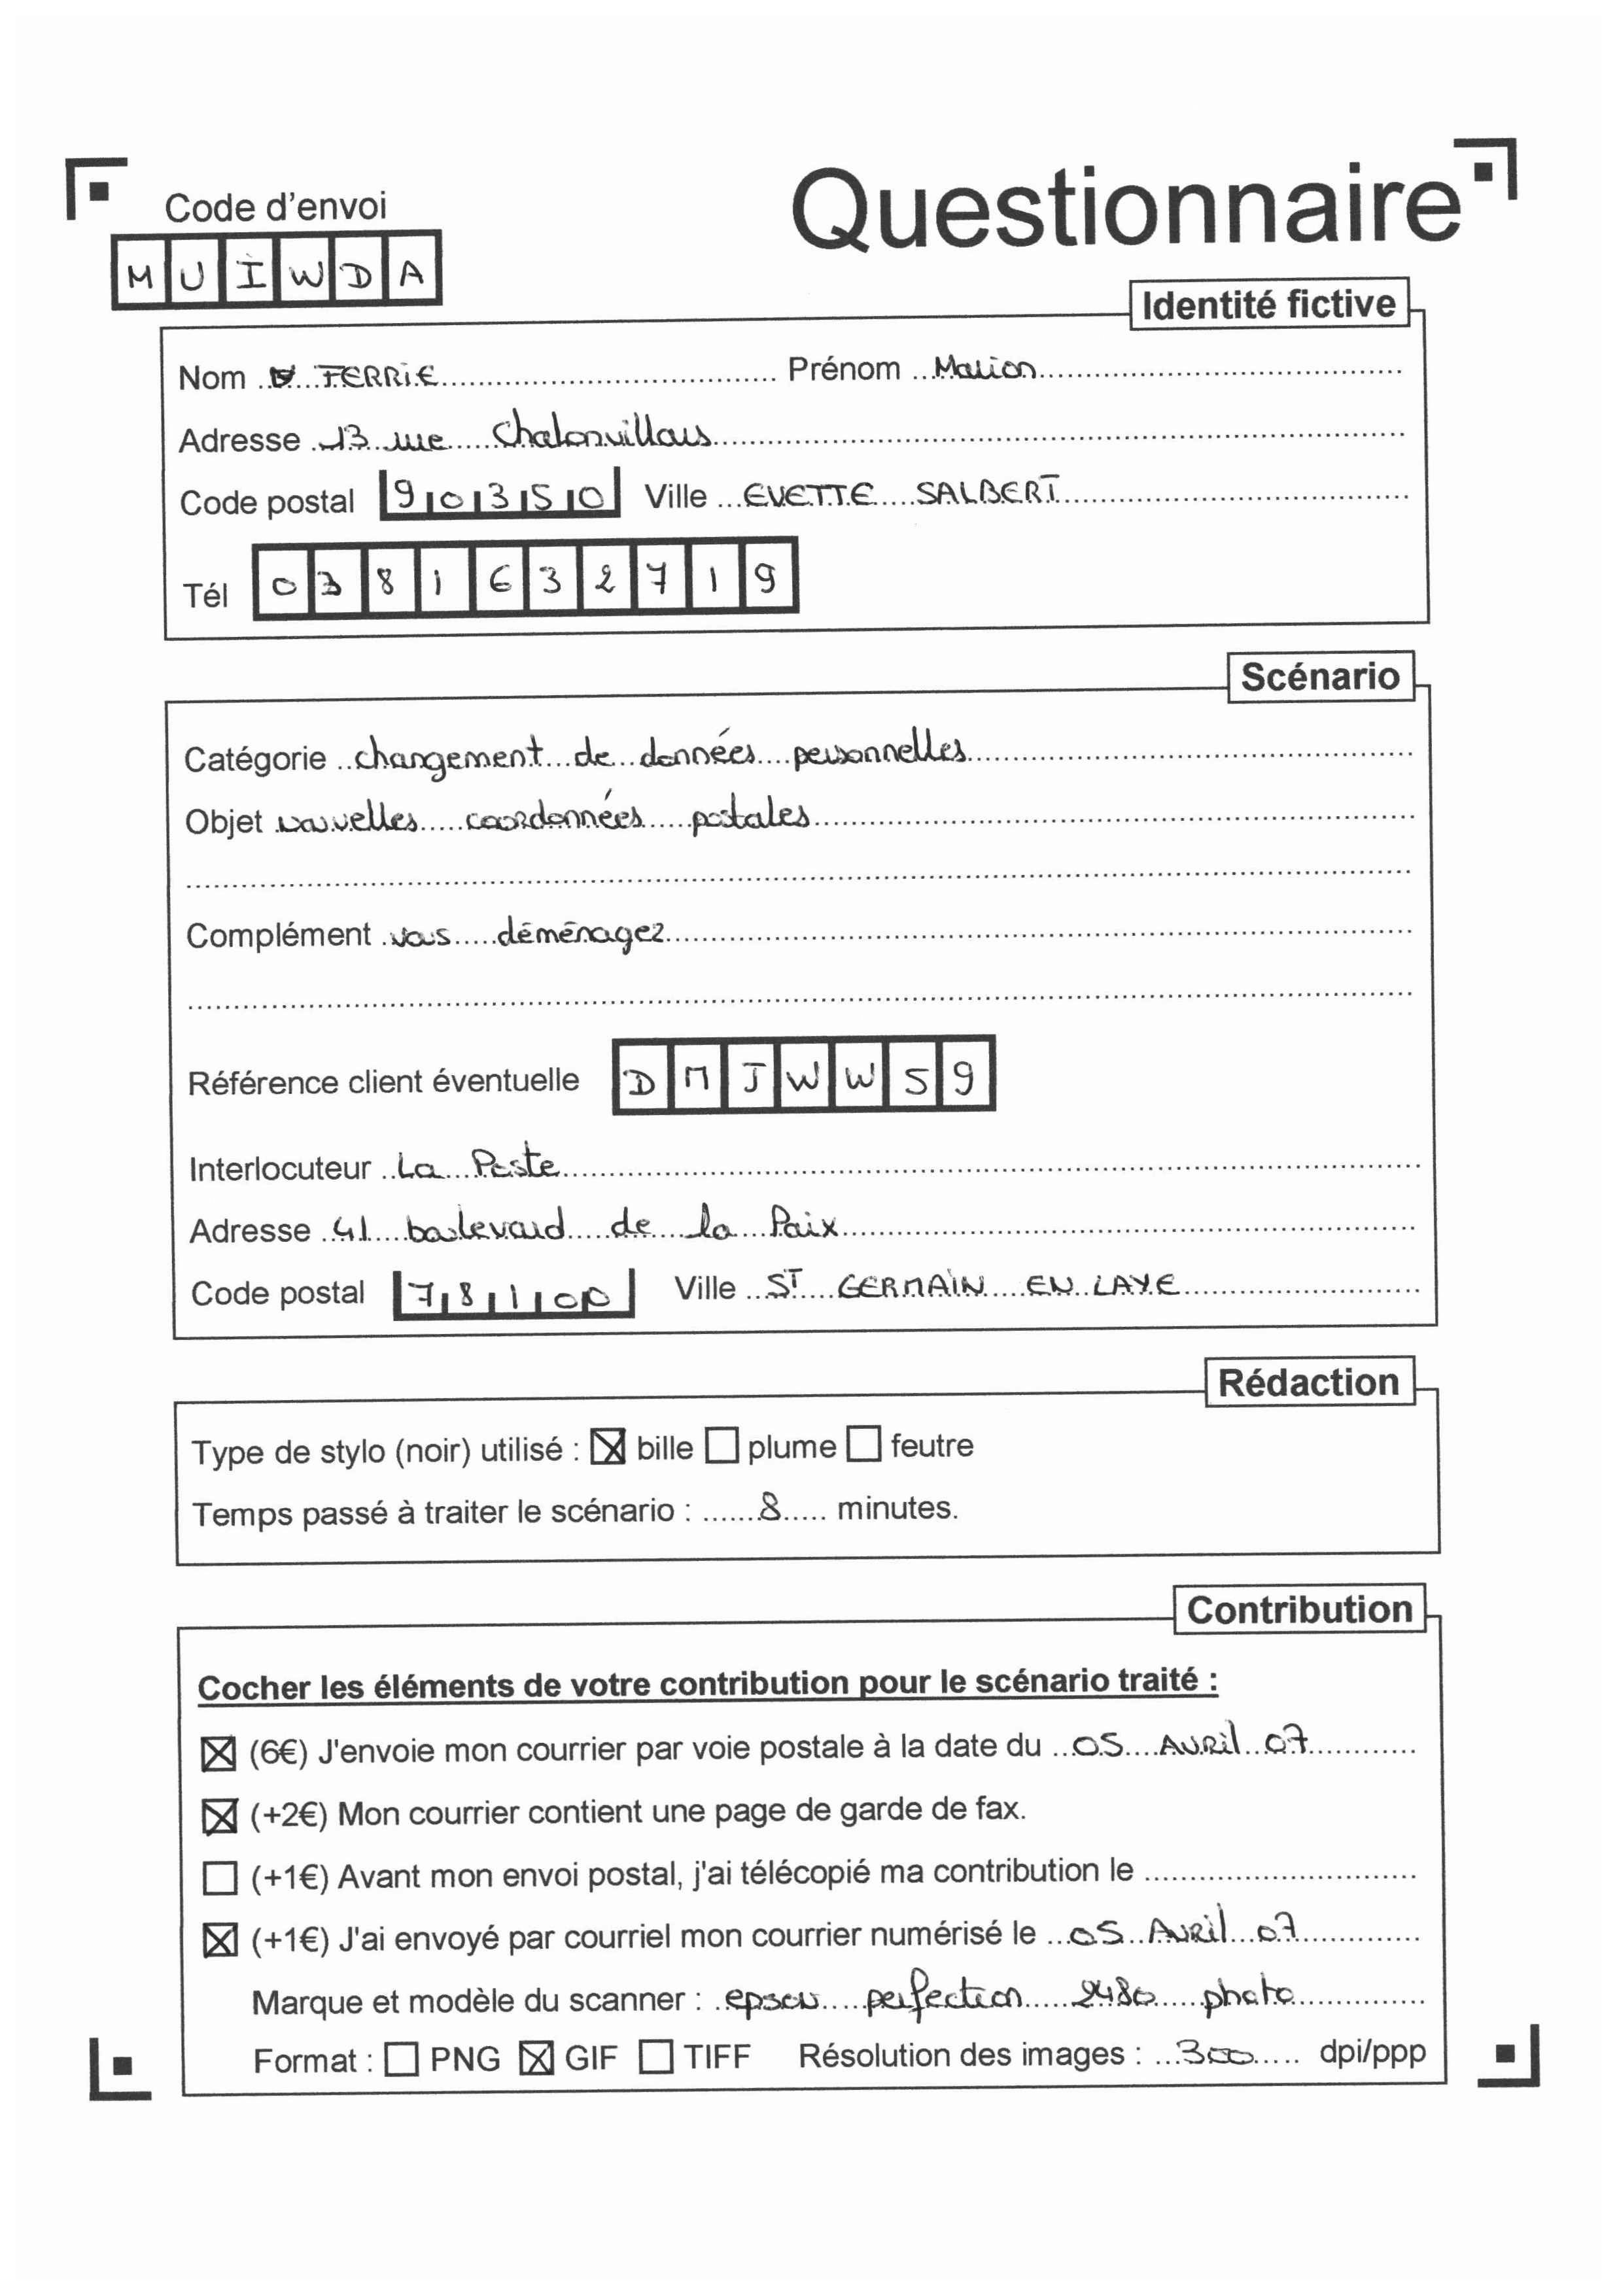 Code d'envoi
Questionnaire
MUIWDA
Identité fictive
Nom FERRIE Prénom Marion
Adresse 13 rue Chalonvillars
Code postal 90350 Ville EVETTE SALBERT
Tél 0381632719
Scénario
Catégorie changement de données personnelles
Objet nouvelles coordonnées postales
Complément vous déménagez
Référence client éventuelle DMJWW59
Interlocuteur La Poste
Adresse 41 boulevard de la Paix
Code postal 78100 Ville ST GERMAIN EN LAYE
Rédaction
Type de stylo (noir) utilisé : ☒ bille ☐ plume ☐ feutre
Temps passé à traiter le scénario : 8 minutes.
Contribution
Cocher les éléments de votre contribution pour le scénario traité :
☒ (6€) J'envoie mon courrier par voie postale à la date du 05 Avril 07
☒ (+2€) Mon courrier contient une page de garde de fax.
☐ (+1€) Avant mon envoi postal, j'ai télécopié ma contribution le
☒ (+1€) J'ai envoyé par courriel mon courrier numérisé le 05 Avril 07
Marque et modèle du scanner : epson perfection 2480 photo
Format : ☐ PNG ☒ GIF ☐ TIFF Résolution des images : 300 dpi/ppp